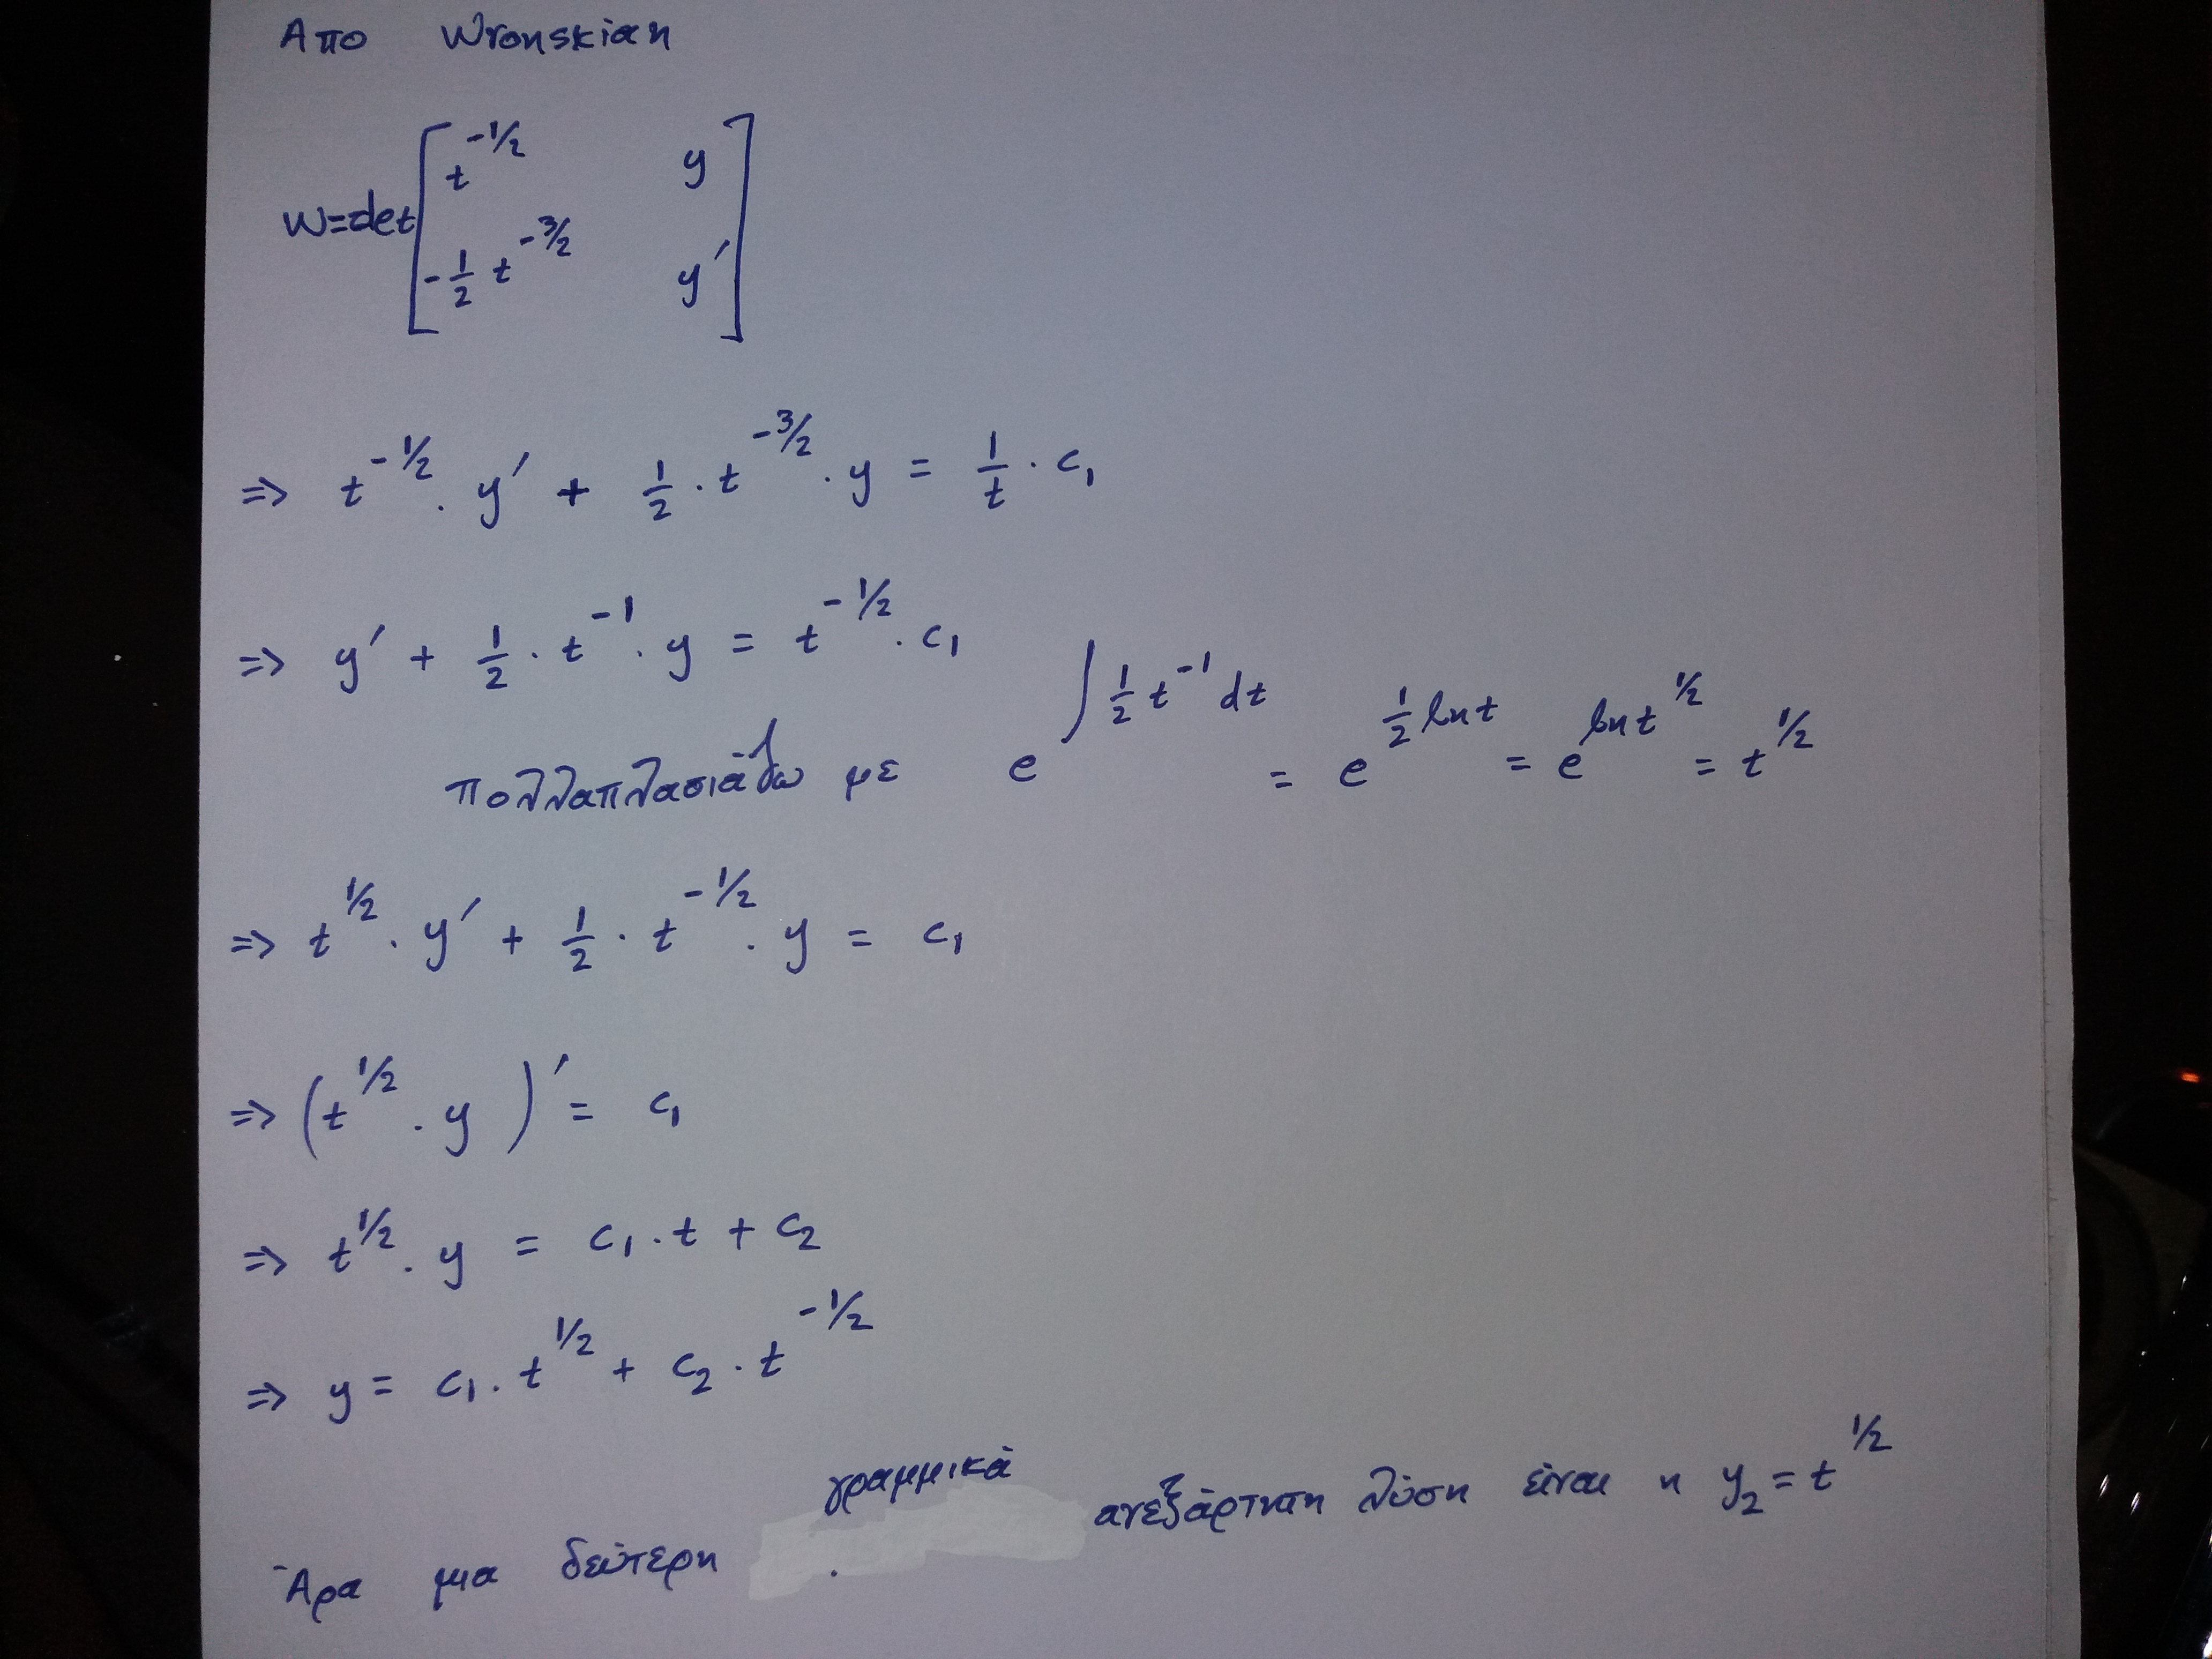 Απο Wronskian
W=det[t^{-1/2} y
-1/2 t^{-3/2} y′]
=> t^{-1/2} · y′ + 1/2 · t^{-3/2} · y = 1/t · c₁
=> y′ + 1/2 · t^{-1} · y = t^{-1/2} · c₁
πολλαπλασιάζω με e^{∫ 1/2 t^{-1} dt} = e^{1/2 ln t} = e^{ln t^{1/2}} = t^{1/2}
=> t^{1/2} · y′ + 1/2 · t^{-1/2} · y = c₁
=> (t^{1/2} · y)′ = c₁
=> t^{1/2} · y = c₁ · t + c₂
=> y = c₁ · t^{1/2} + c₂ · t^{-1/2}
Άρα μια δεύτερη γραμμικά ανεξάρτητη λύση είναι η y₂ = t^{1/2}